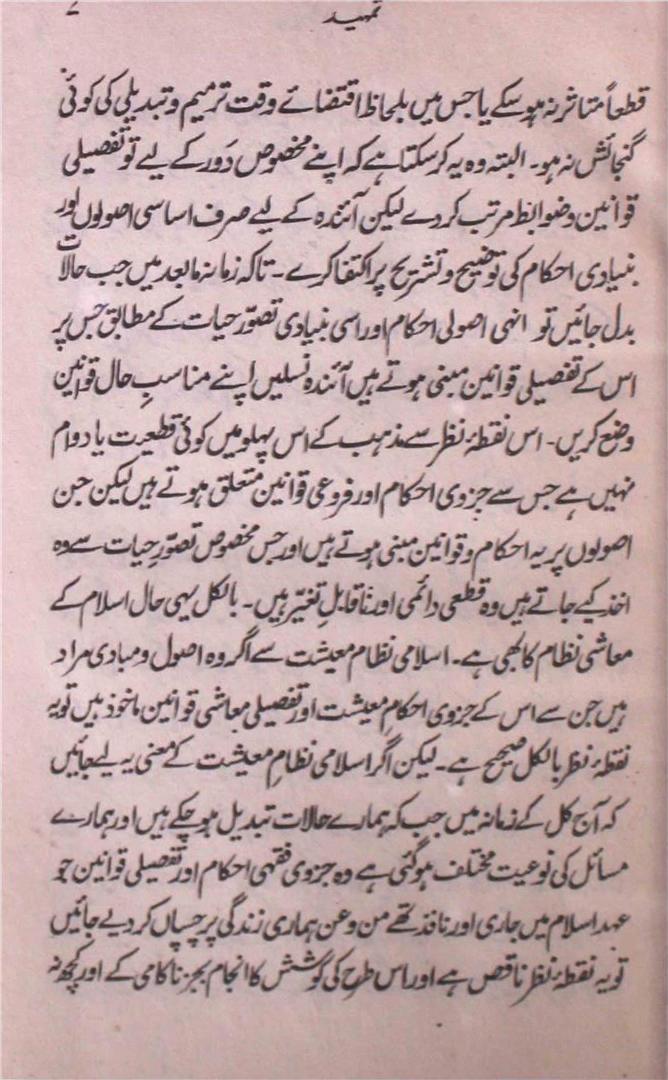 تمہید
۷
قطعاً متاثر نہ ہو سکے یا جس میں بلحاظ اقتضائے وقت ترمیم و تبدیلی کی کوئی
گنجائش نہ ہو۔ البتہ وہ یہ کر سکتا ہے کہ اپنے مخصوص دَور کے لیے تو تفصیلی
قوانین و ضوابط مرتب کر دے لیکن آئندہ کے لیے صرف اساسی اصولوں اور
بنیادی احکام کی توضیح و تشریح پر اکتفا کرے۔ تاکہ زمانہ مابعد میں جب حالات
بدل جائیں تو انہی اصولی احکام اور اسی بنیادی تصوّر حیات کے مطابق جس پر
اس کے تفصیلی قوانین مبنی ہوتے ہیں آئندہ نسلیں اپنے مناسبِ حال قوانین
وضع کریں۔ اس نقطۂ نظر سے مذہب کے اس پہلو میں کوئی قطعیت یا دوام
نہیں ہے جس سے جزوی احکام اور فروعی قوانین متعلق ہوتے ہیں لیکن جن
اصولوں پر یہ احکام و قوانین مبنی ہوتے ہیں اور جس مخصوص تصوّرِ حیات سے وہ
اخذ کیے جاتے ہیں وہ قطعی دائمی اور ناقابلِ تغیّر ہیں۔ بالکل یہی حال اسلام کے
معاشی نظام کا بھی ہے۔ اسلامی نظام معیشت سے اگر وہ اصول و مبادی مراد
ہیں جن سے اس کے جزوی احکامِ معیشت اور تفصیلی معاشی قوانین ماخوذ ہیں تو یہ
نقطۂ نظر بالکل صحیح ہے۔ لیکن اگر اسلامی نظامِ معیشت کے معنی یہ لیے جائیں
کہ آج کل کے زمانہ میں جب کہ ہمارے حالات تبدیل ہو چکے ہیں اور ہمارے
مسائل کی نوعیت مختلف ہو گئی ہے وہ جزوی فقہی احکام اور تفصیلی قوانین جو
عہد اسلام میں جاری اور نافذ تھے من و عن ہماری زندگی پر چسپاں کر دیے جائیں
تو یہ نقطۂ نظر ناقص ہے اور اس طرح کی کوشش کا انجام بجز ناکامی کے اور کچھ نہ